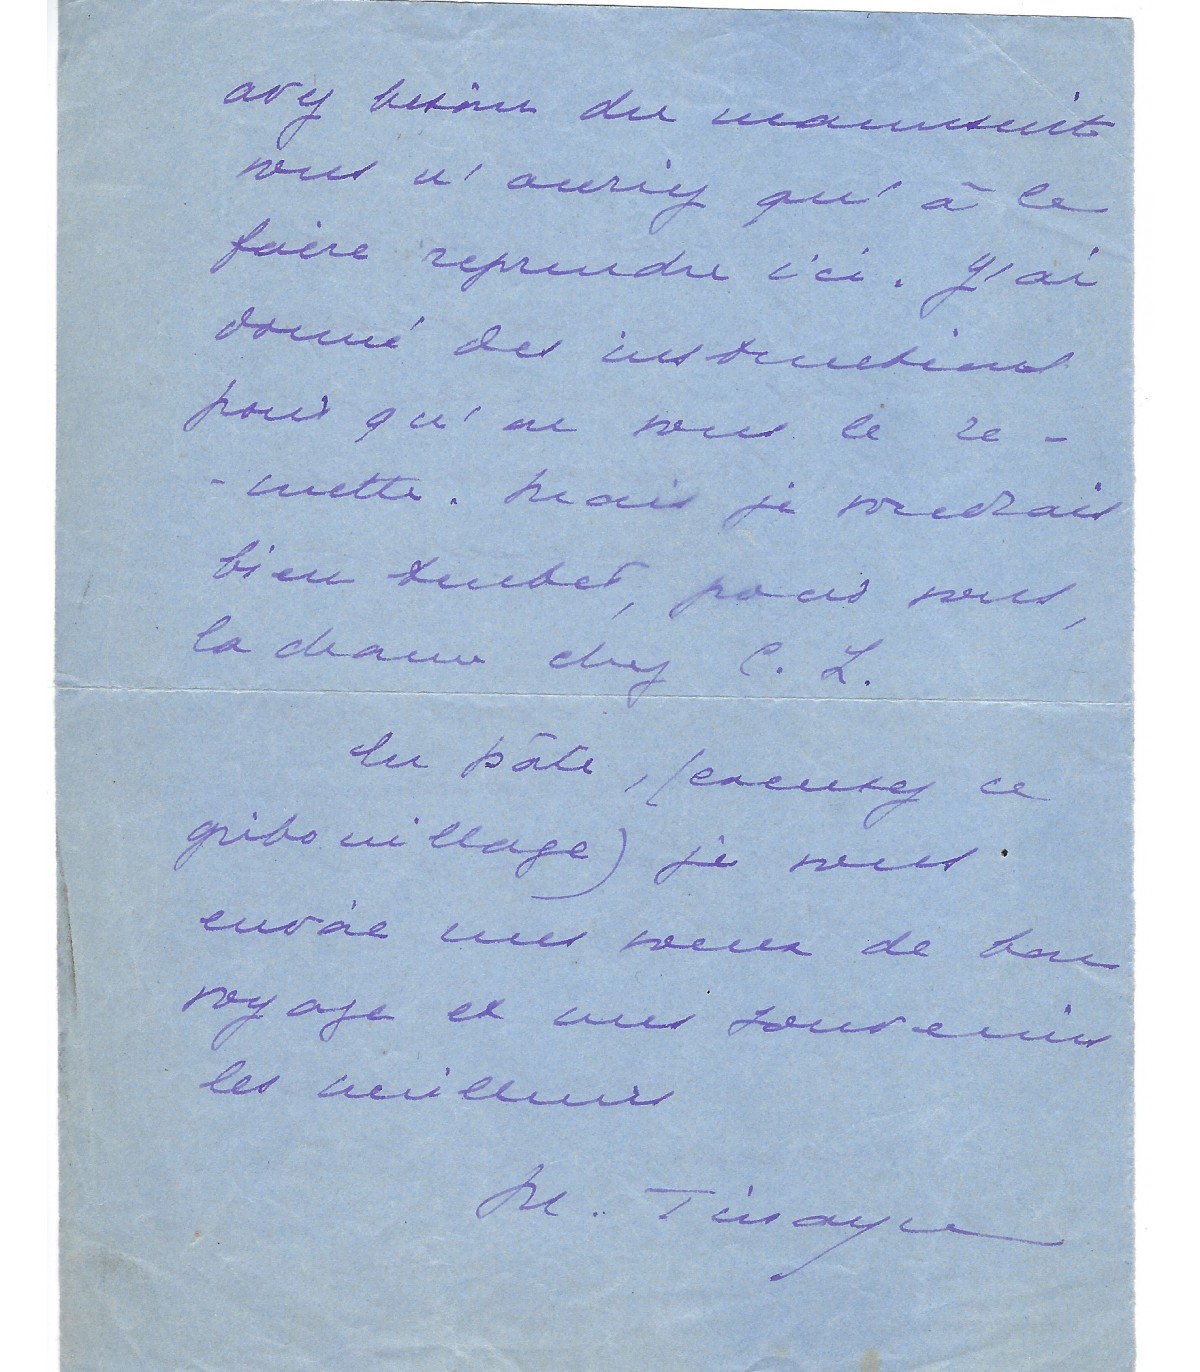 avez besoin du manuscrit
vous n'auriez qu'à le
faire reprendre ici. J'ai
donné des instructions
pour qu'on vous le re-
-mette. Mais je voudrais
bien tenter, pour vous,
la chance chez C. L.
En hâte, (excusez ce
gribouillage) je vous
envoie mes voeux de bon
voyage et mes souvenirs
les meilleurs
M. Tinayre